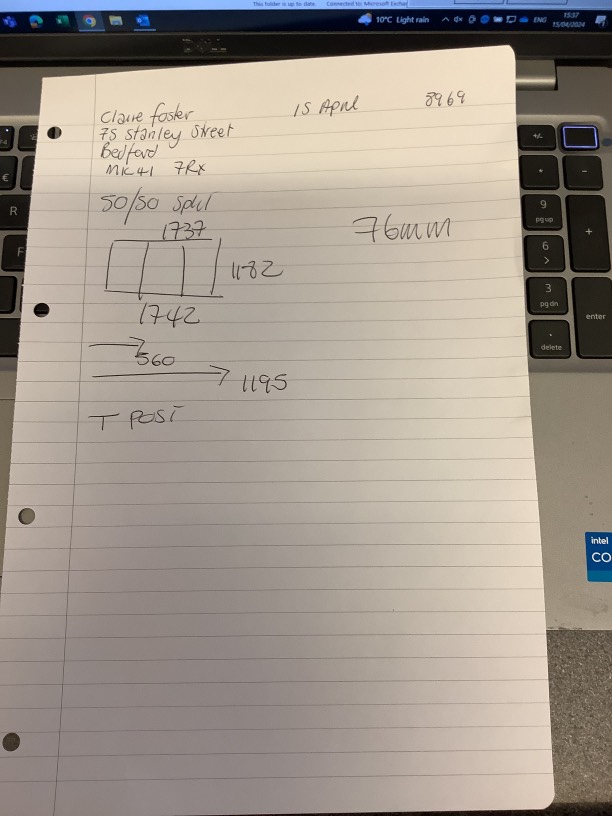 This folder is up to date. Connected to: Microsoft Exchan
10°C Light rain
ENG
15:37
15/04/2024
DELL
Claire Foster
15 April
8969
75 Stanley Street
Bedford
MK41 7RX
50/50 Split
76mm
1737
1182
1742
560
1195
T POST
€
R
F
+/-
*
-
9
pg up
+
6
>
3
pg dn
enter
.
delete
intel
CO